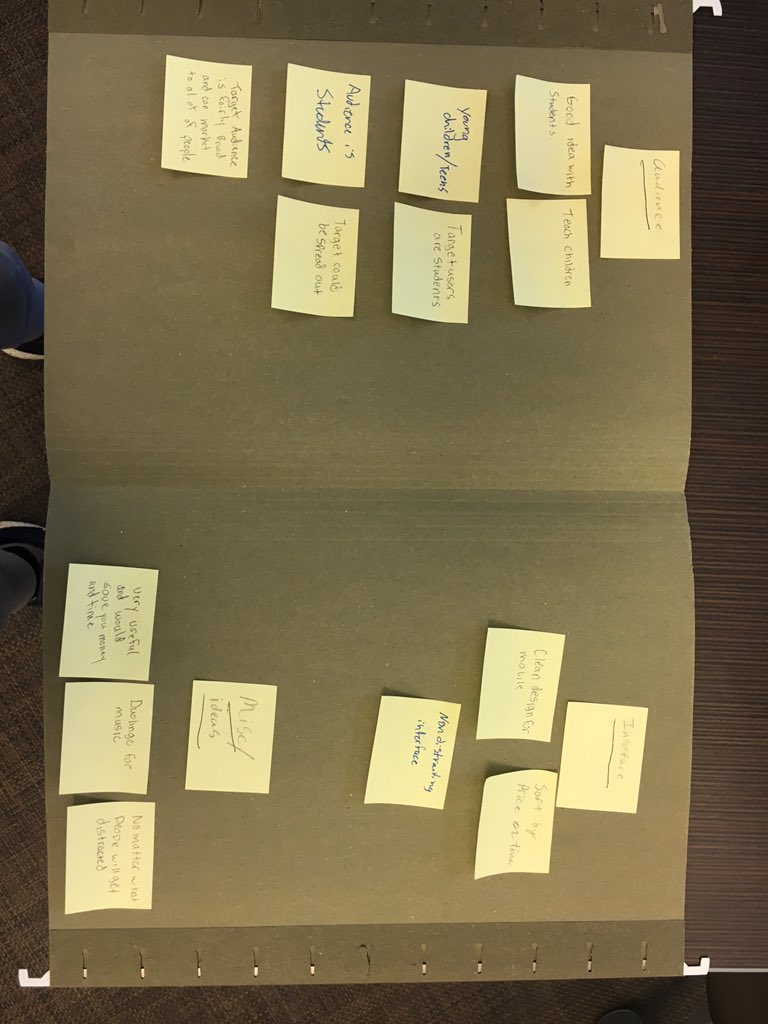 Audience
Good idea with
Students.
Teach children
young
children/Teens
Target users
are students
Audience is
Students
Target could
be spread out
Target Audience
is fairly Broad
and can market
to al ot of people
Interface
Clean design for
mobile
Sort by
Price or time
Non distracting
interface
Misc/
ideas
very useful
and would
save you money
and time
Duolingo for
music
No matter what
People will get
distracted